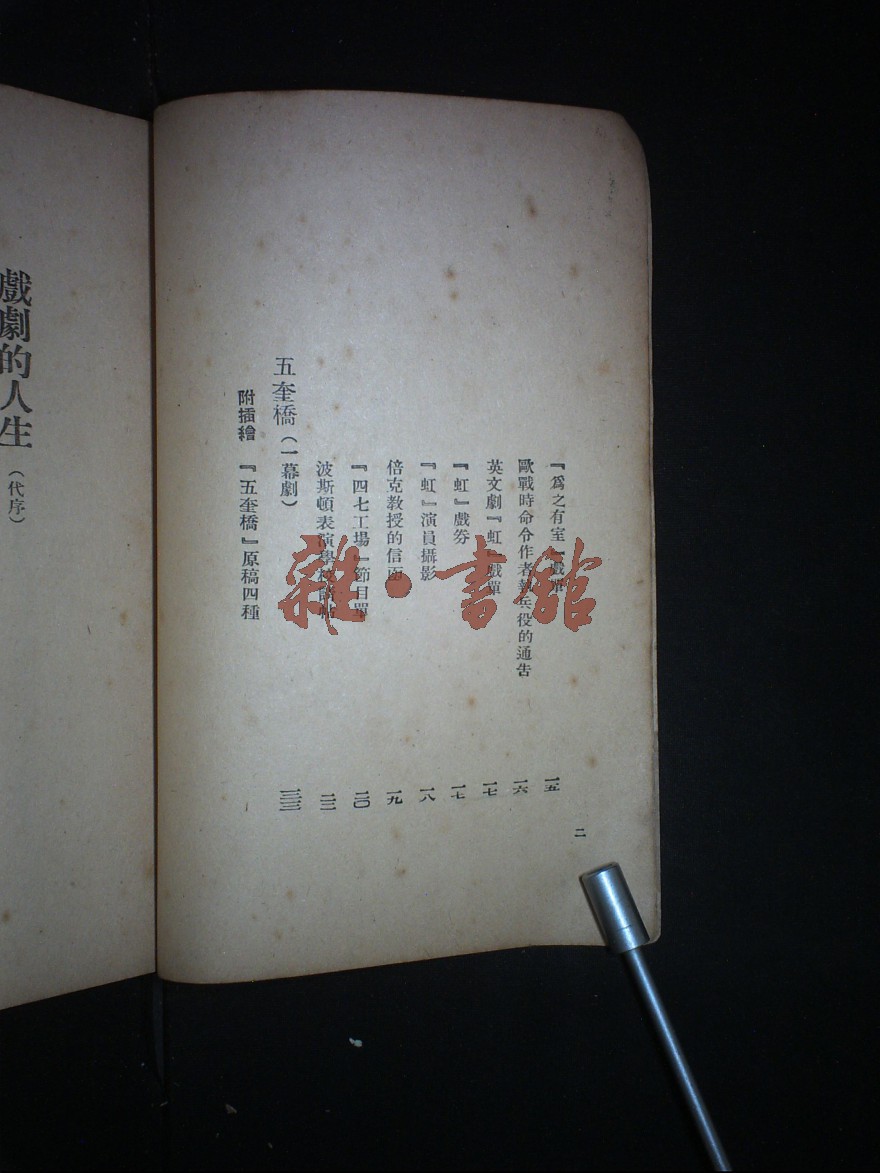 『爲之有室』戲單 一五
歐戰時命令作者執兵役的通告 一六
英文劇『虹』戲單 一七
『虹』戲券 一七
『虹』演員攝影 一八
倍克教授的信面 一九
『四七工場』節目單 二〇
波斯頓表演學校 二二
五奎橋（一幕劇） 二三
附插繪 『五奎橋』原稿四種
二
戲劇的人生（代序）
雜·書館